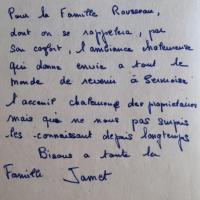 Pour la Famille Rousseau,
dont on se rappelera, par
son confort, l'ambiance chaleureuse
qui donne envie a tout le
monde de revenir à
l'acceuil chaleureuse des proprietaires
mais que ne nous pas surpris
les connaissant depuis longtemps
Bisous a toute la
Famille Jamet